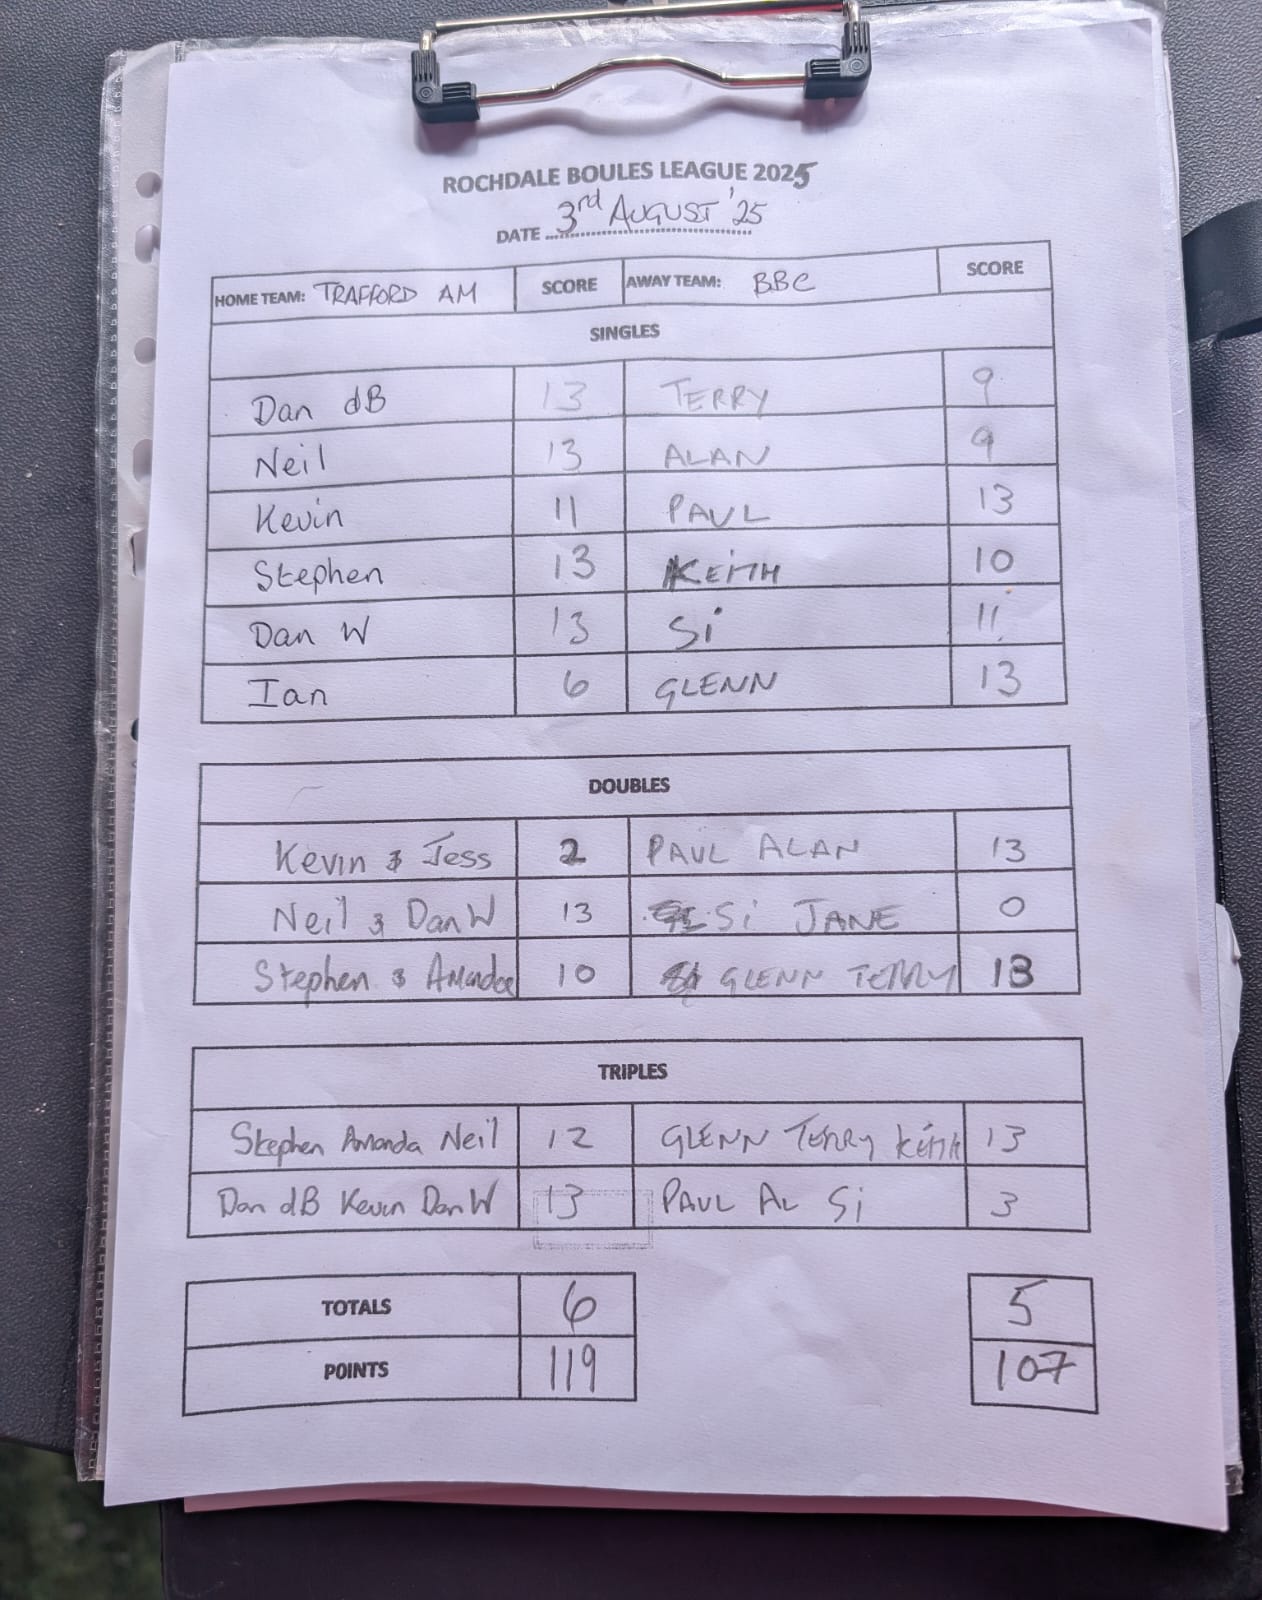 ROCHDALE BOULES LEAGUE 2025
DATE 3rd AUGUST '25
HOME TEAM: TRAFFORD AM SCORE AWAY TEAM: BBC SCORE
SINGLES
Dan dB 13 TERRY 9
Neil 13 ALAN 9
Kevin 11 PAUL 13
Stephen 13 KEITH 10
Dan W 13 Si 11
Ian 6 GLENN 13
DOUBLES
Kevin & Jess 2 PAUL ALAN 13
Neil & Dan W 13 Si JANE 0
Stephen & Amanda 10 GLENN TERRY 13
TRIPLES
Stephen Amanda Neil 12 GLENN TERRY KEITH 13
Dan dB Kevin Dan W 13 PAUL AL Si 3
TOTALS 6 5
POINTS 119 107